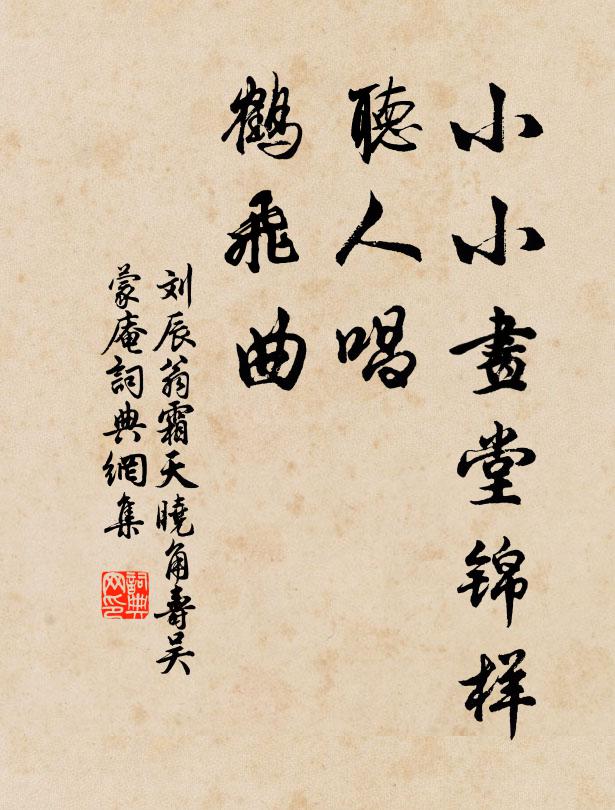 小小畫堂錦样
聽人唱
鶴飛曲
刘辰翁霜天曉角壽吴
蒙庵詞典網集
詞典
网印